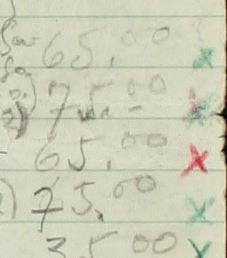 65.00 x
75.00 x
65.00 x
75.00 x
35 00 x